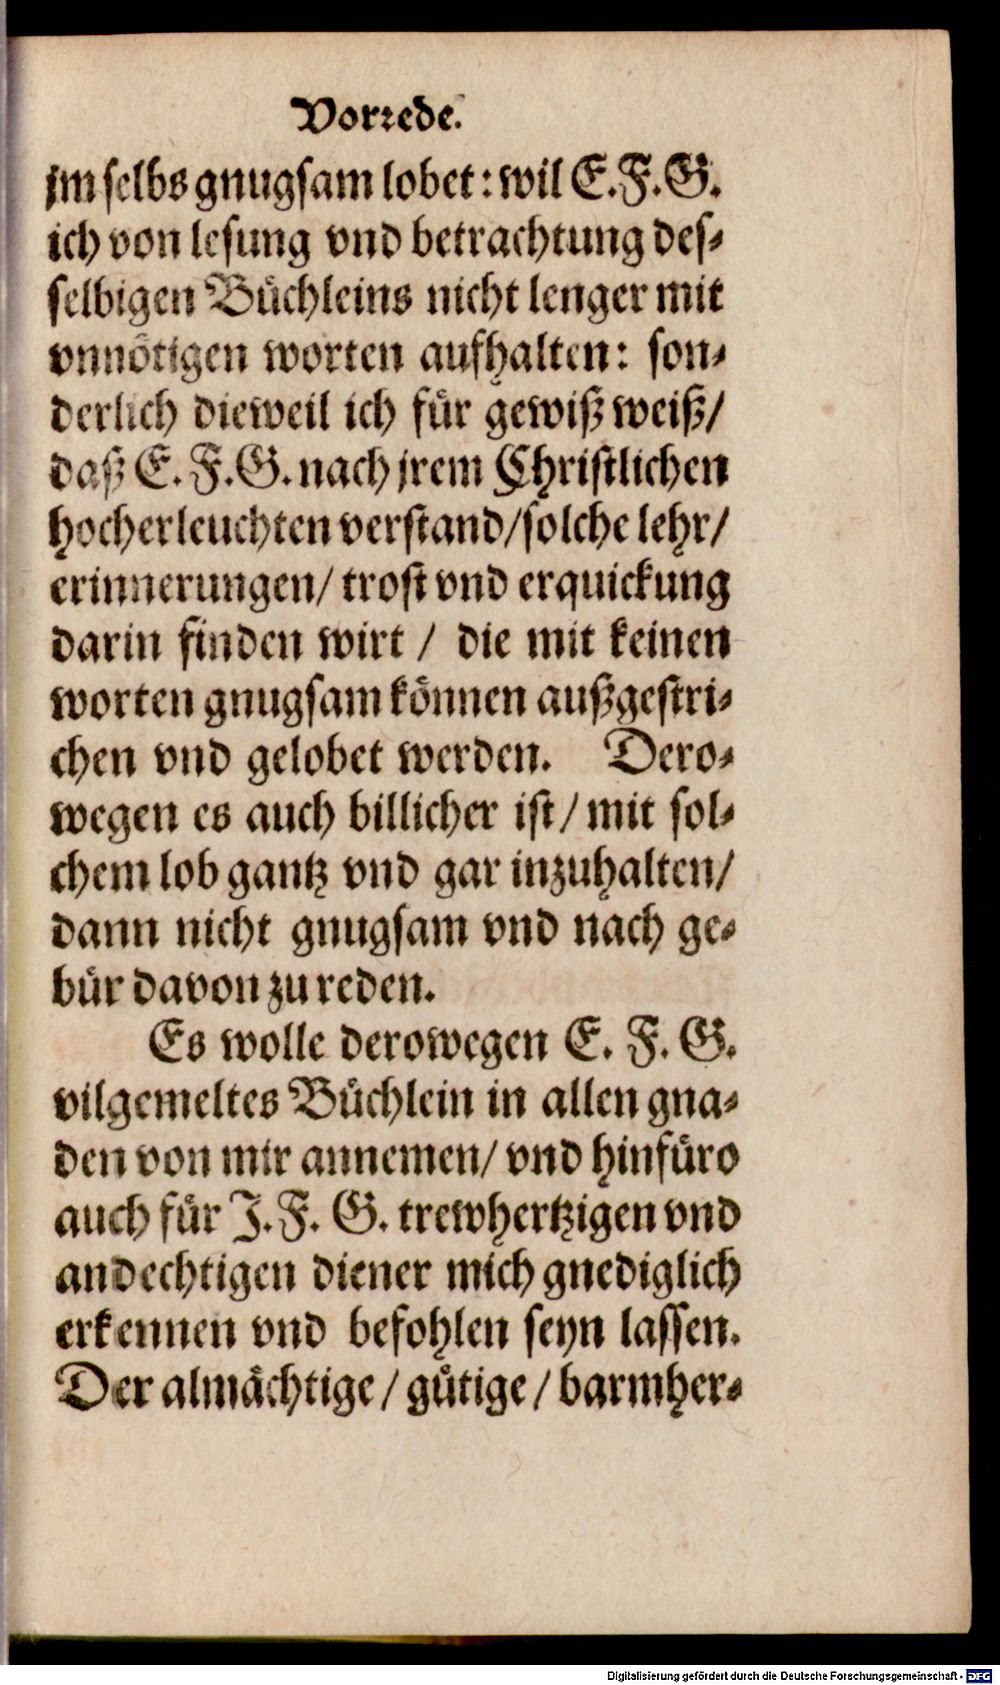 Vorrede.
jm selbs gnugsam lobet: wil E.F.G.
ich von lesung vnd betrachtung des-
selbigen Büchleins nicht lenger mit
vnnötigen worten aufhalten: son-
derlich dieweil ich für gewiß weiß/
daß E.F.G. nach jrem Christlichen
hocherleuchten verstand/solche lehr/
erinnerungen/ trost vnd erquickung
darin finden wirt / die mit keinen
worten gnugsam können außgestri-
chen vnd gelobet werden. Dero-
wegen es auch billicher ist/ mit sol-
chem lob gantz vnd gar inzuhalten/
dann nicht gnugsam vnd nach ge-
bür davon zu reden.
Es wolle derowegen E. F. G.
vilgemeltes Büchlein in allen gna-
den von mir annemen/ vnd hinfüro
auch für J.F. G. trewhertzigen vnd
andechtigen diener mich gnediglich
erkennen vnd befohlen seyn lassen.
Der almächtige/ gütige/ barmher-
Digitalisierung gefördert durch die Deutsche Forschungsgemeinschaft - DFG